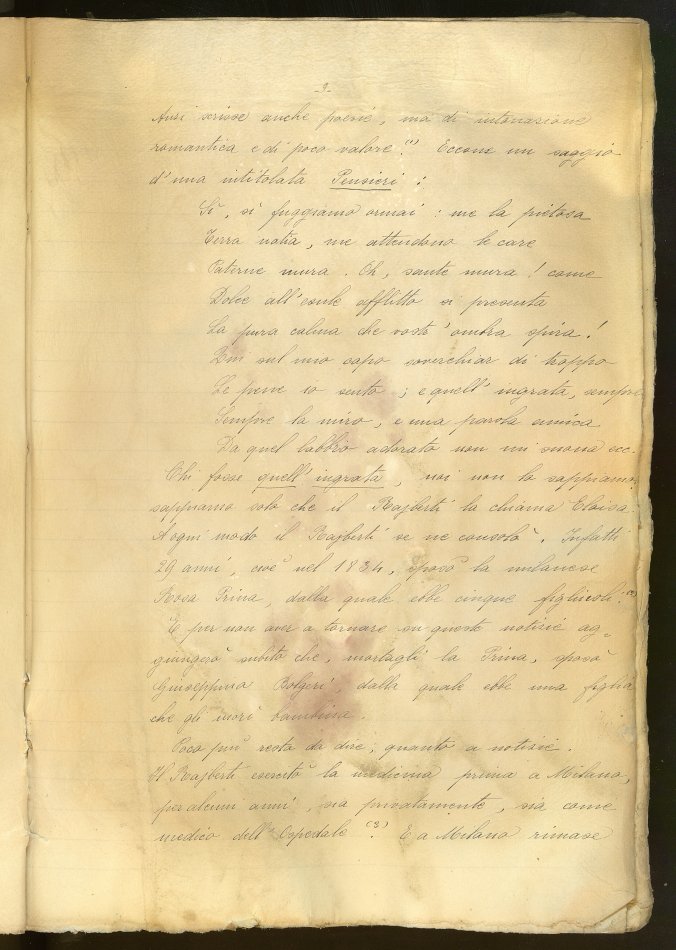 -9-
Anzi scrisse anche poesie, ma di intonazione
romantica e di poco valore.(1) Eccone un saggio
d'una intitolata Pensieri :
Sì, sì fuggiamo ormai : me la pietosa
Terra natia, me attendono le care
Paterne mura. Oh, sante mura ! come
Dolce all'esule afflitto si presenta
La pura calma che vostr'ombra spira !
Qui sul mio capo soverchiar di troppo
Le pene io sento ; e quell'ingrata, sempre
Sempre la miro, e una parola amica
Da quel labbro adorato non mi suona ecc.
Chi fosse quell'ingrata, noi non lo sappiamo;
sappiamo solo che il Rajberti la chiama Eloisa.
A ogni modo il Rajberti se ne consolò. Infatti
29 anni, cioè nel 1834, sposò la milanese
Rosa Prina, dalla quale ebbe cinque figliuoli.(2)
E per non aver a tornare su queste notizie ag=
giungerò subito che, mortagli la Prina, sposò
Giuseppina Bolgeri, dalla quale ebbe una figlia
che gli morì bambina.
Poco più resta da dire, quanto a notizie.
Il Rajberti esercitò la medicina prima a Milano,
per alcuni anni, sia privatamente, sia come
medico dell'Ospedale(3). E a Milano rimase